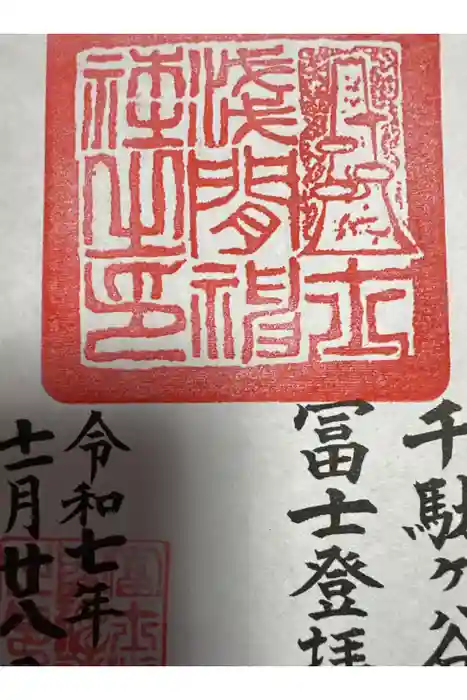 冨士
浅間神
社之印
千駄ヶ谷
冨士登拝
令和七年
十一月廿八日